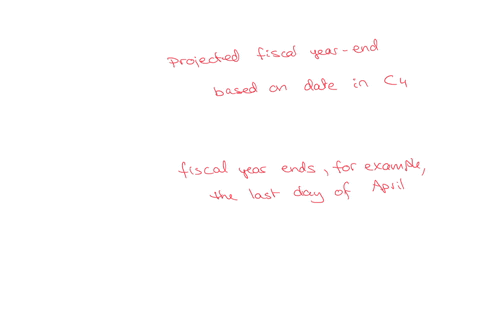 projected fiscal year-end
based on date in C4
fiscal year ends, for example,
the last day of April